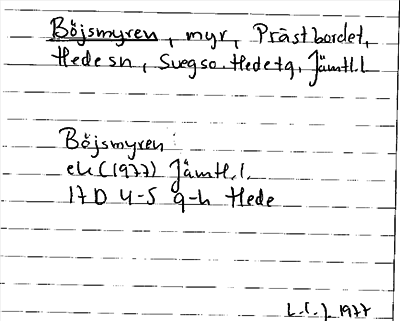 Böjsmyren, myr, Prästbordet,
Hede sn, Svegso. Hede tg, Jämtl. l
Böjsmyren
ek (1977) Jämtl. l.
17 D 4-5 g-h Hede
1977